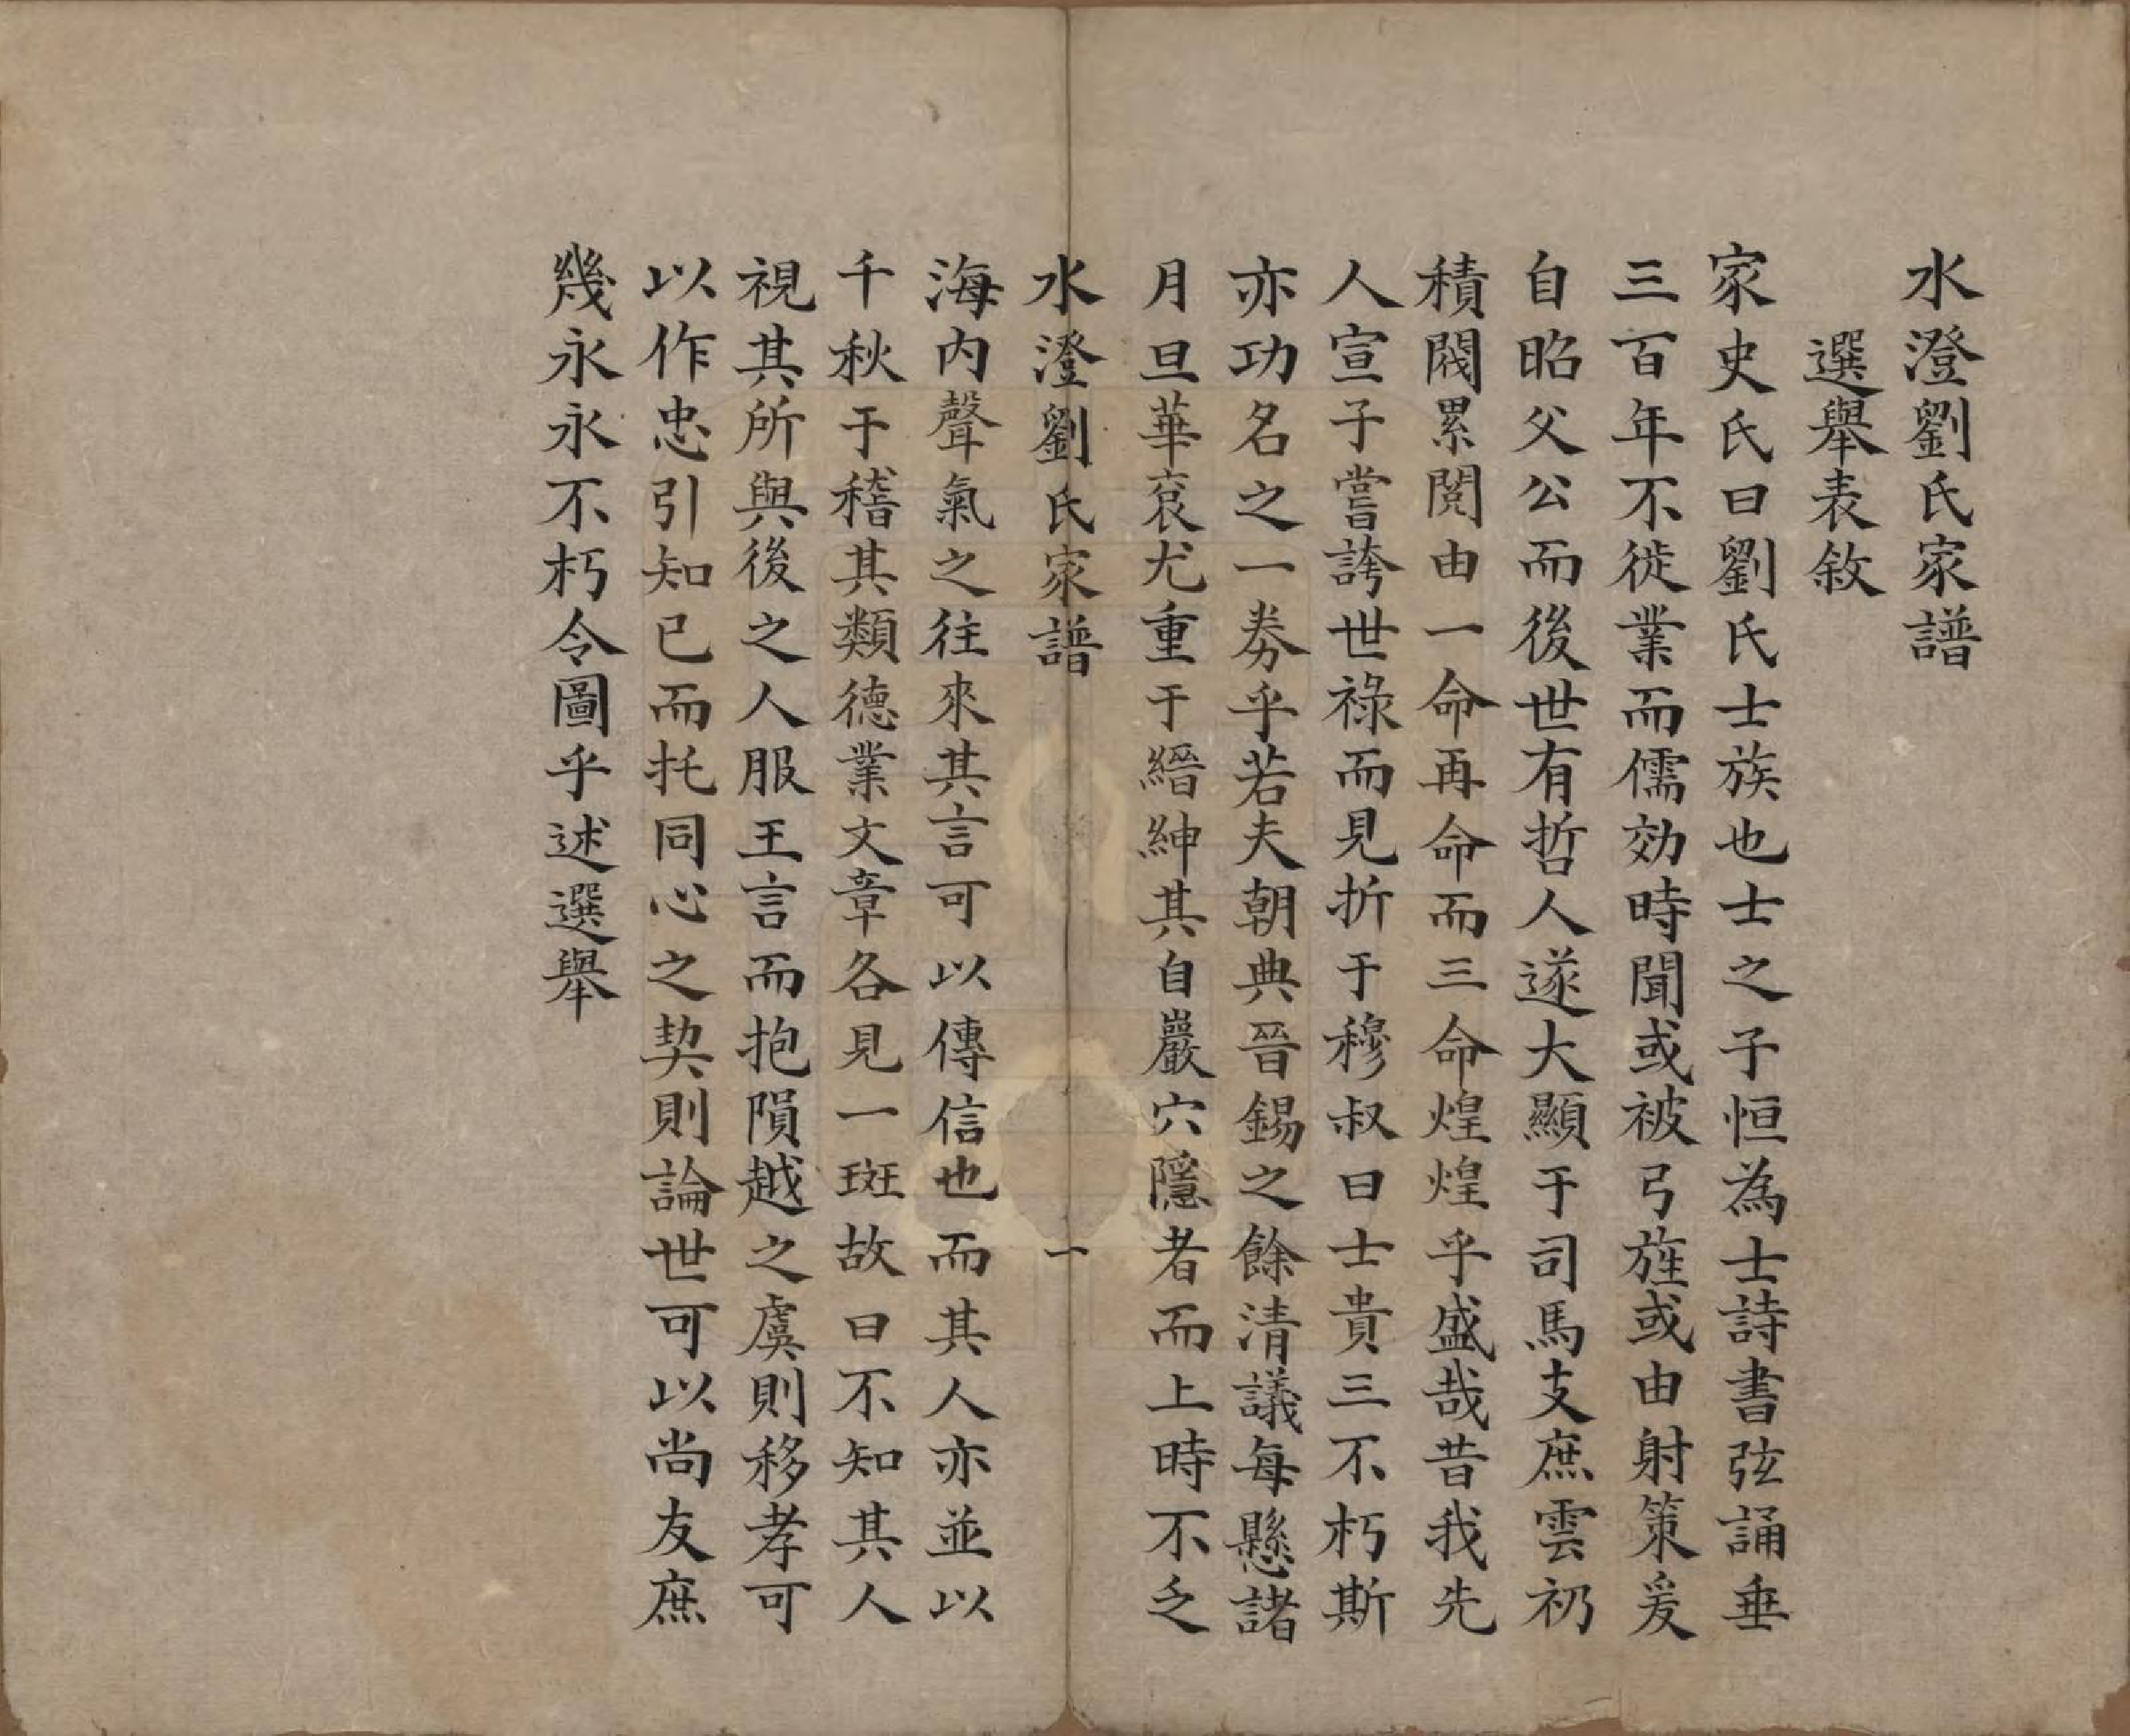 水澄劉氏家譜
選舉表敘
家史氏曰劉氏士族也士之子恒為士詩書弦誦垂
三百年不徙業而儒効時聞或被弓旌或由射策爰
自昭父公而後世有哲人遂大顯于司馬支庶雲礽
積閥累閱由一命再命而三命煌煌乎盛哉昔我先
人宣子嘗誇世祿而見折于穆叔曰士貴三不朽斯
亦功名之一券乎若夫朝典晉錫之餘清議每懸諸
月旦華袞尤重于縉紳其自巖穴隱者而上時不乏
水澄劉氏家譜 一
海內聲氣之往來其言可以傳信也而其人亦並以
千秋于稽其類德業文章各見一斑故曰不知其人
視其所與後之人服王言而抱隕越之虞則移孝可
以作忠引知已而托同心之契則論世可以尚友庶
幾永永不朽令圖乎述選舉